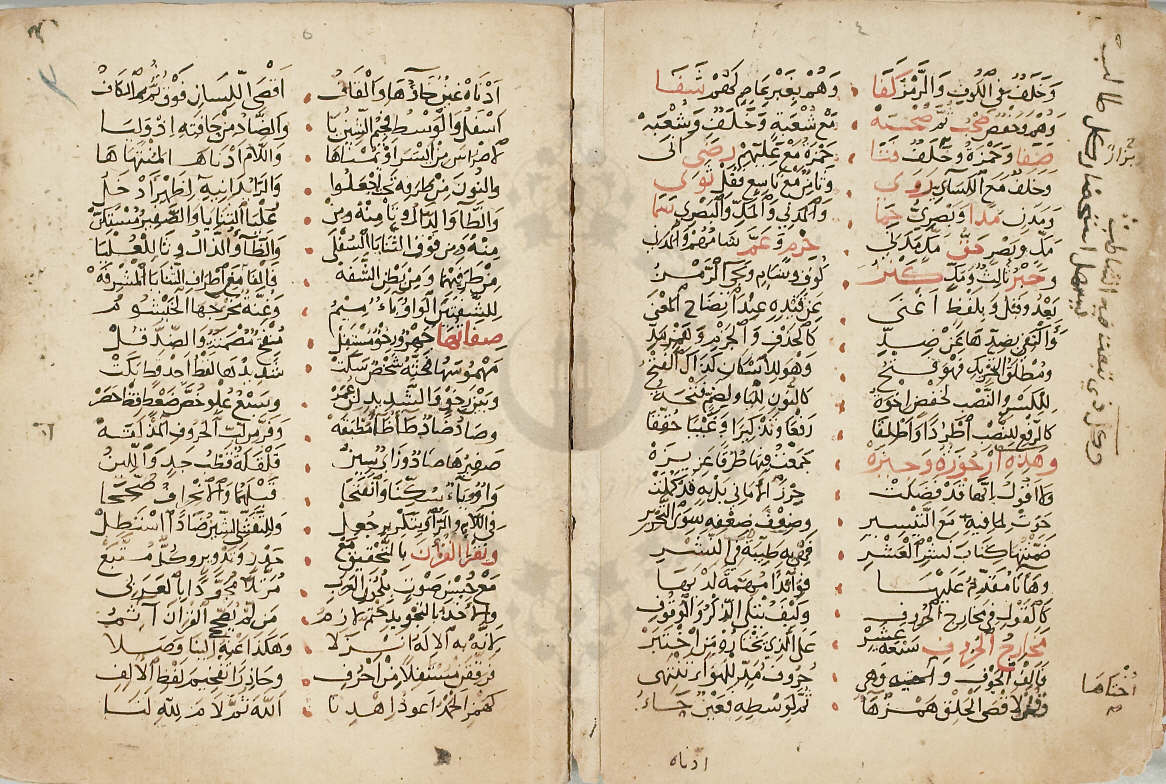 ٤
وَخَلَفٌ في الكوف والرمز كفا • وهم بغير عاصم لهم شفا
وهم وحفص صحب ثم صحبة • مع شعبة وخلف وشعبة
صفا وحمزة وخلف فتى • حمزة مع عليهم رضى اتى
وخلف مع الكسائي روى • وثامن مع تاسع فقل ثوى
ومدن مدا وبصري حما • والمدني والمك والبصري سما
مك وبصر حق مك مدني • حرم وعم شامهم والمدني
وحبر ثالث ومك كنز • كوف وشام ويجي الرمز
بعد وقبل وبلفظ اغنى • عن قيده عند اتضاح المعنى
واكتفي بضدها عن ضد • كالحذف والجزم وهمز مد
ومطلق التحريك فهو فتح • وهو للاسكان كذاك الفتح
للكسر والنصب لخفض اخوة • كالنون لليا ولضم فتحة
كالرفع للنصب اطردا واطلقا • رفعا وتذكيرا وغيبا حققا
وهذه ارجوزة وجيزة • جمعت فيها طرقا عزيزة
ولا اقول انها قد فضلت • حرز الاماني بل به قد كملت
حوت لما فيه مع التيسير • وضعف ضعفه سوى التحرير
ضمنتها كتاب نشر العشر • فهي به طيبة في النشر
وها انا مقدم عليها • فوائدا مهمة لديها
كالقول في مخارج الحروف • وكيف يتلى الذكر والوقوف
مخارج الحروف سبعة عشر • على الذي يختاره من اختبر
فالف الجوف واختيه وهي • حروف مد للهواء تنتهي
وقل لاقصى الحلق همز هاء • ثم لوسطه فعين حاء
ادناه
اختاها
ليسهل استحضار كل طالب
٥
ادناه غين خاؤها والقاف • اقصى اللسان فوق ثم الكاف
اسفل والوسط فجيم الشين يا • والضاد من حافته اذ وليا
لاضراس من ايسر او يمناها • واللام ادناها لمنتهاها
والنون من طرفه تحت اجعلوا • والرا يدانيه لظهر ادخل
والطا والدال وتا منه ومن • عليا الثنايا والصفير مستكن
منه ومن فوق الثنايا السفلى • والظا والذال وثا للعليا
من طرفيهما ومن بطن الشفه • فالفا مع اطراف الثنايا المشرفه
للشفتين الواو باء ميم • وغنة مخرجها الخيشوم
صفاتها جهر ورخو مستفل • منفتح مصمتة والضد قل
مهموسها فحثه شخص سكت • شديدها لفظ اجد قط بكت
وبين رخو والشديد لن عمر • وسبع علو خص ضغط قظ حصر
وصاد ضاد طا ظا مطبقه • وفر من لب الحروف المذلقه
صفيرها صاد وزاي سين • قلقلة قطب جد واللين
واو وياء سكنا وانفتحا • قبلهما والانحراف صححا
في اللام والرا وبتكرير جعل • وللتفشي الشين ضادا استطل
ويقرا القران بالتحقيق مع • حدر وتدوير وكل متبع
مع حسن صوت بلحون العرب • مرتلا مجودا بالعربي
والاخذ بالتجويد حتم لازم • من لم يصحح القران آثم
لانه به الاله انزلا • وهكذا عنه الينا وصلا
فرققن مستفلا من احرف • وحاذرن تفخيم لفظ الالف
كهمز الحمد اعوذ اهدنا • الله ثم لام لله لنا